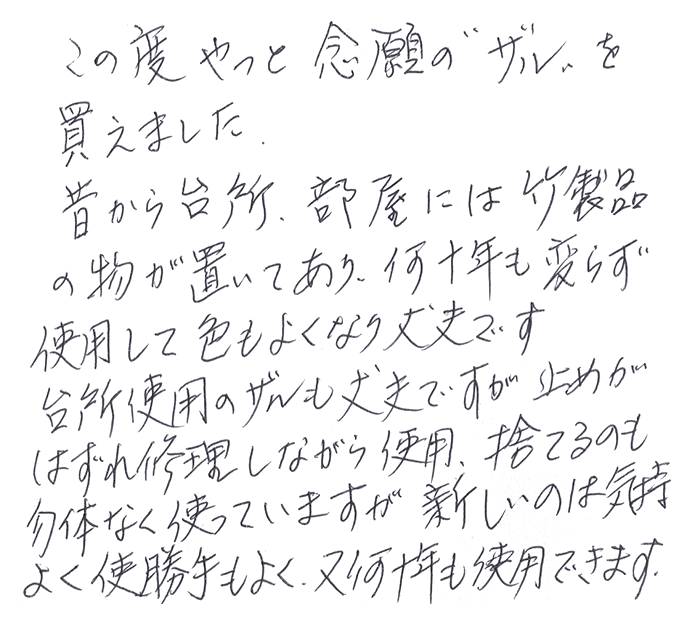 この度やっと念願の"ザル"を
買えました.
昔から台所、部屋には竹製品
の物が置いてあり、何十年も変らず
使用して色もよくなり丈夫です
台所使用のザルも丈夫ですが止めが
はずれ修理しながら使用、捨てるのも
勿体なく使っていますが新しいのは気持
よく使勝手もよく、又何十年も使用できます.